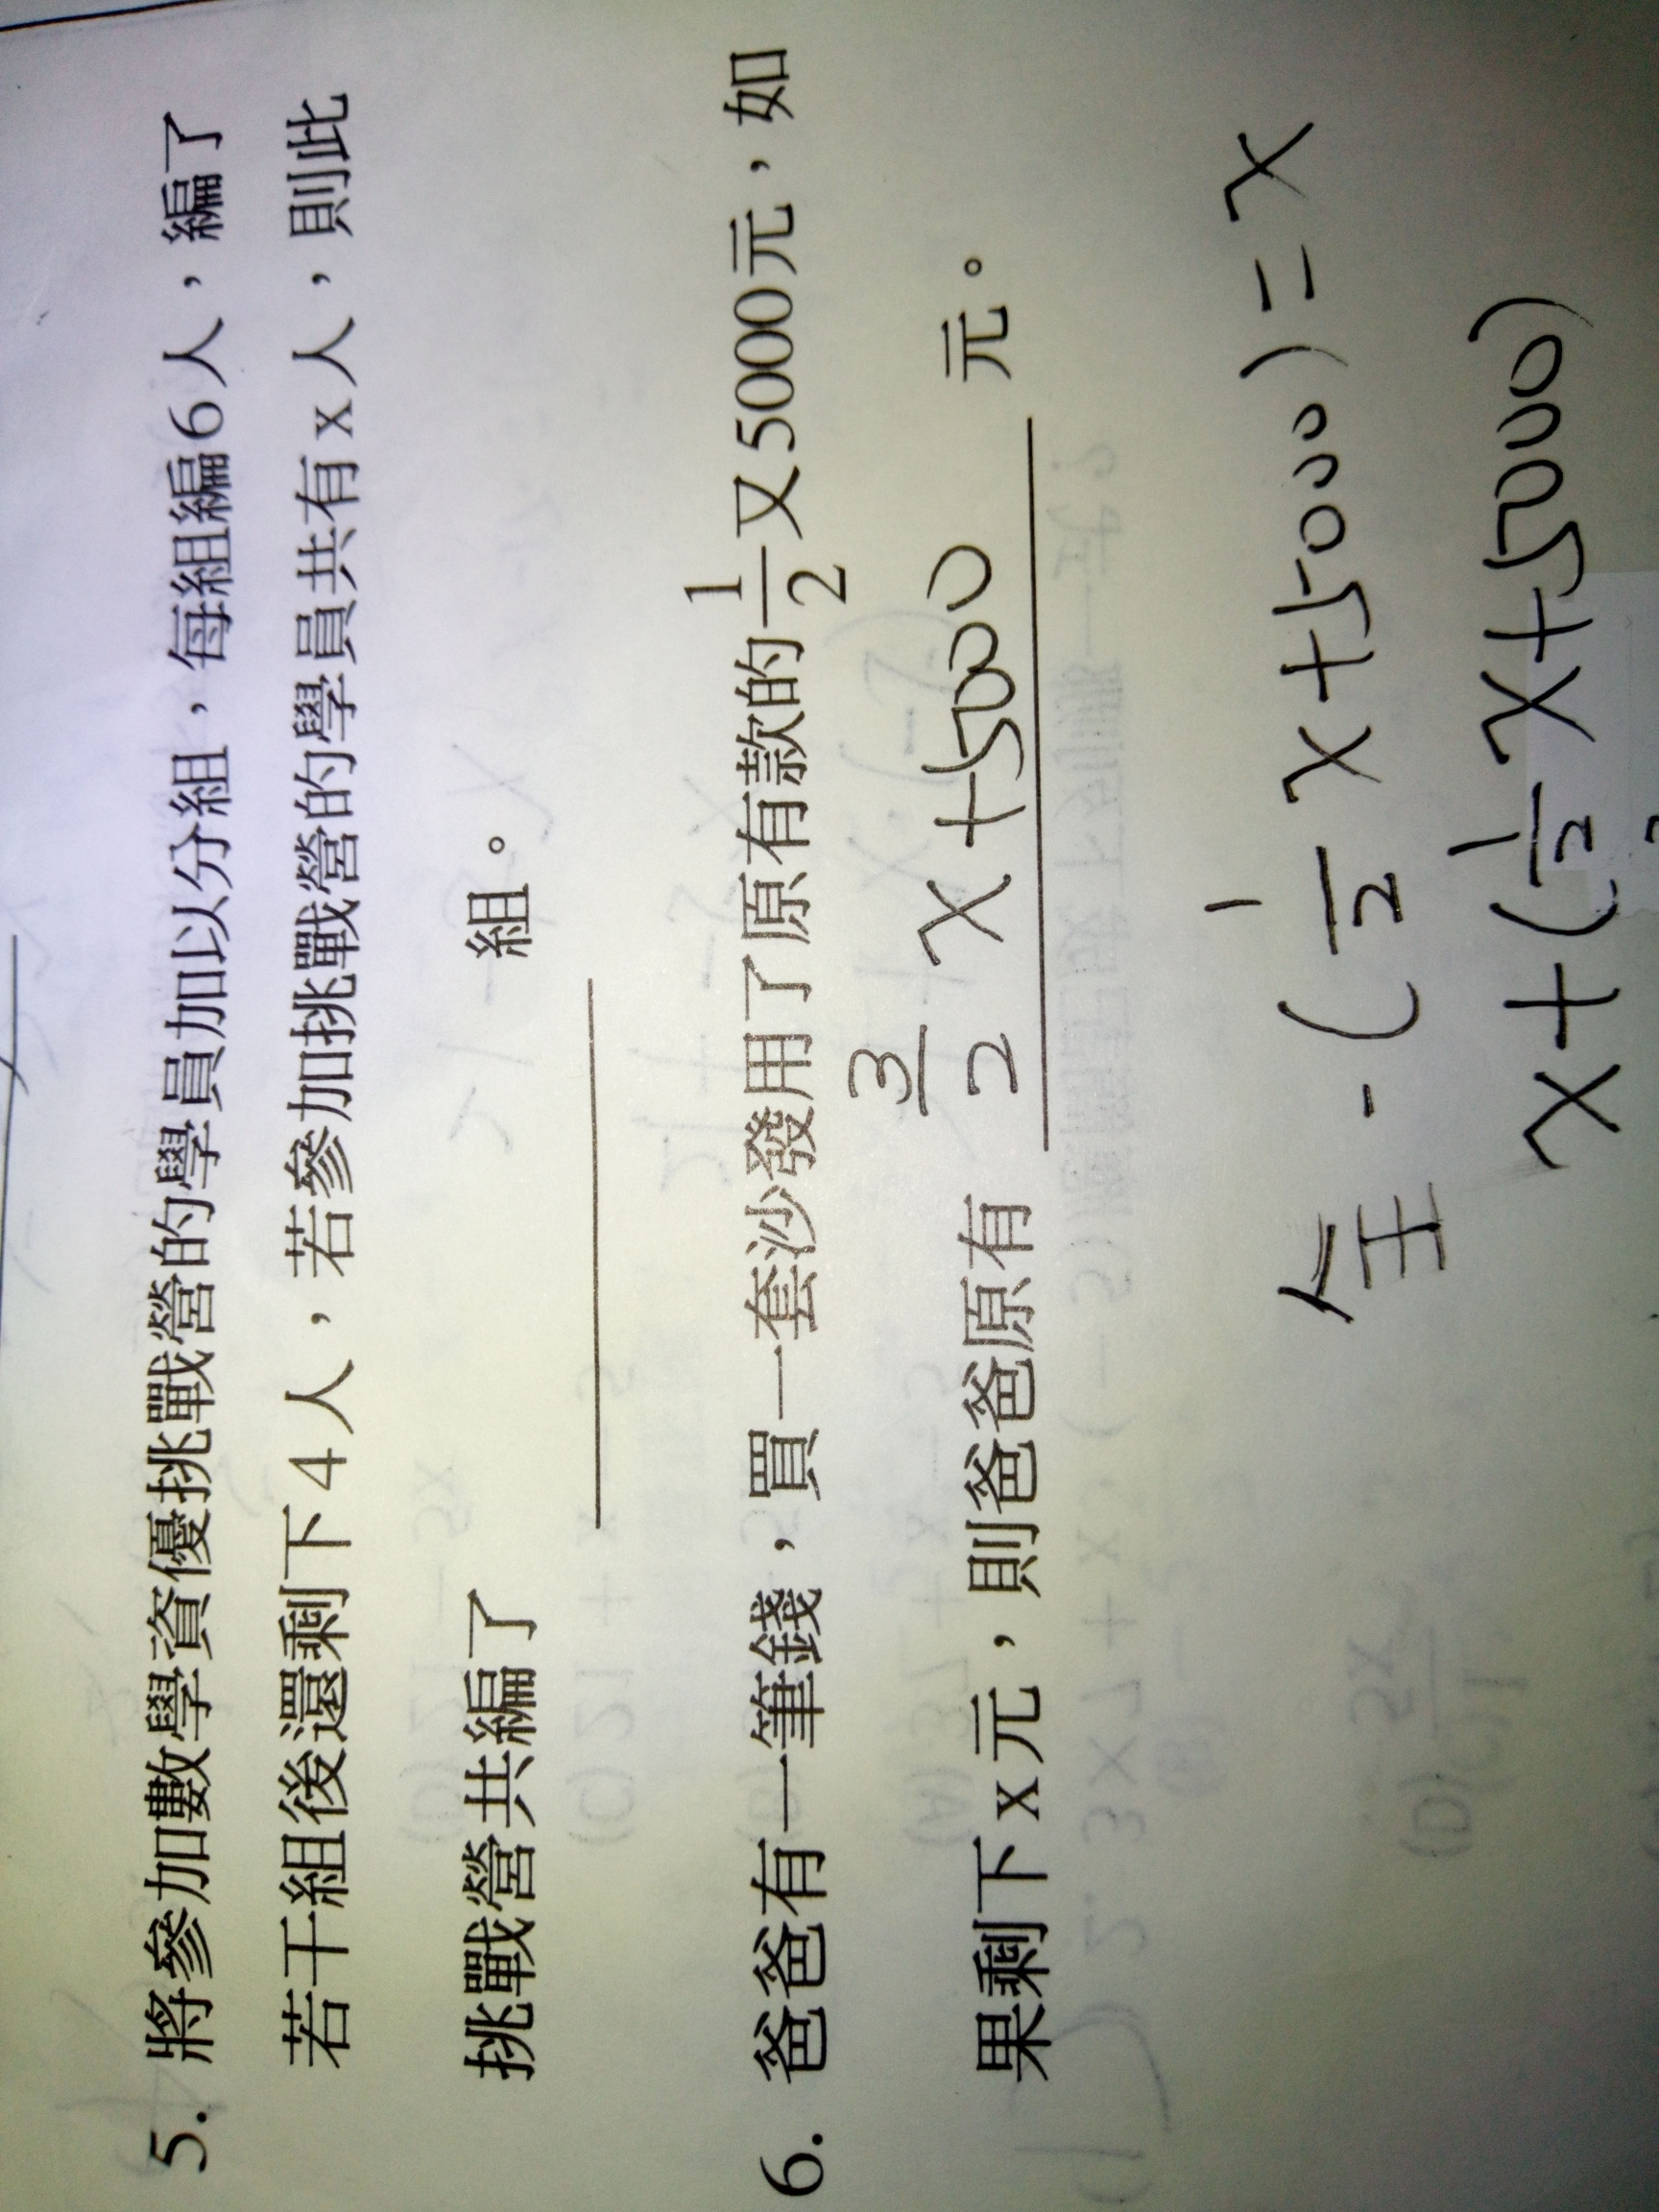 5. 將參加數學資優挑戰營的學員加以分組，每組編6人，編了
若干組後還剩下4人，若參加挑戰營的學員共有x人，則此
挑戰營共編了________組。
6. 爸爸有一筆錢，買一套沙發用了原有款的1/2又5000元，如
果剩下x元，則爸爸原有 3/2 x+5000 元。
全-(1/2 x+5000)=x
x+(1/2 x+5000)